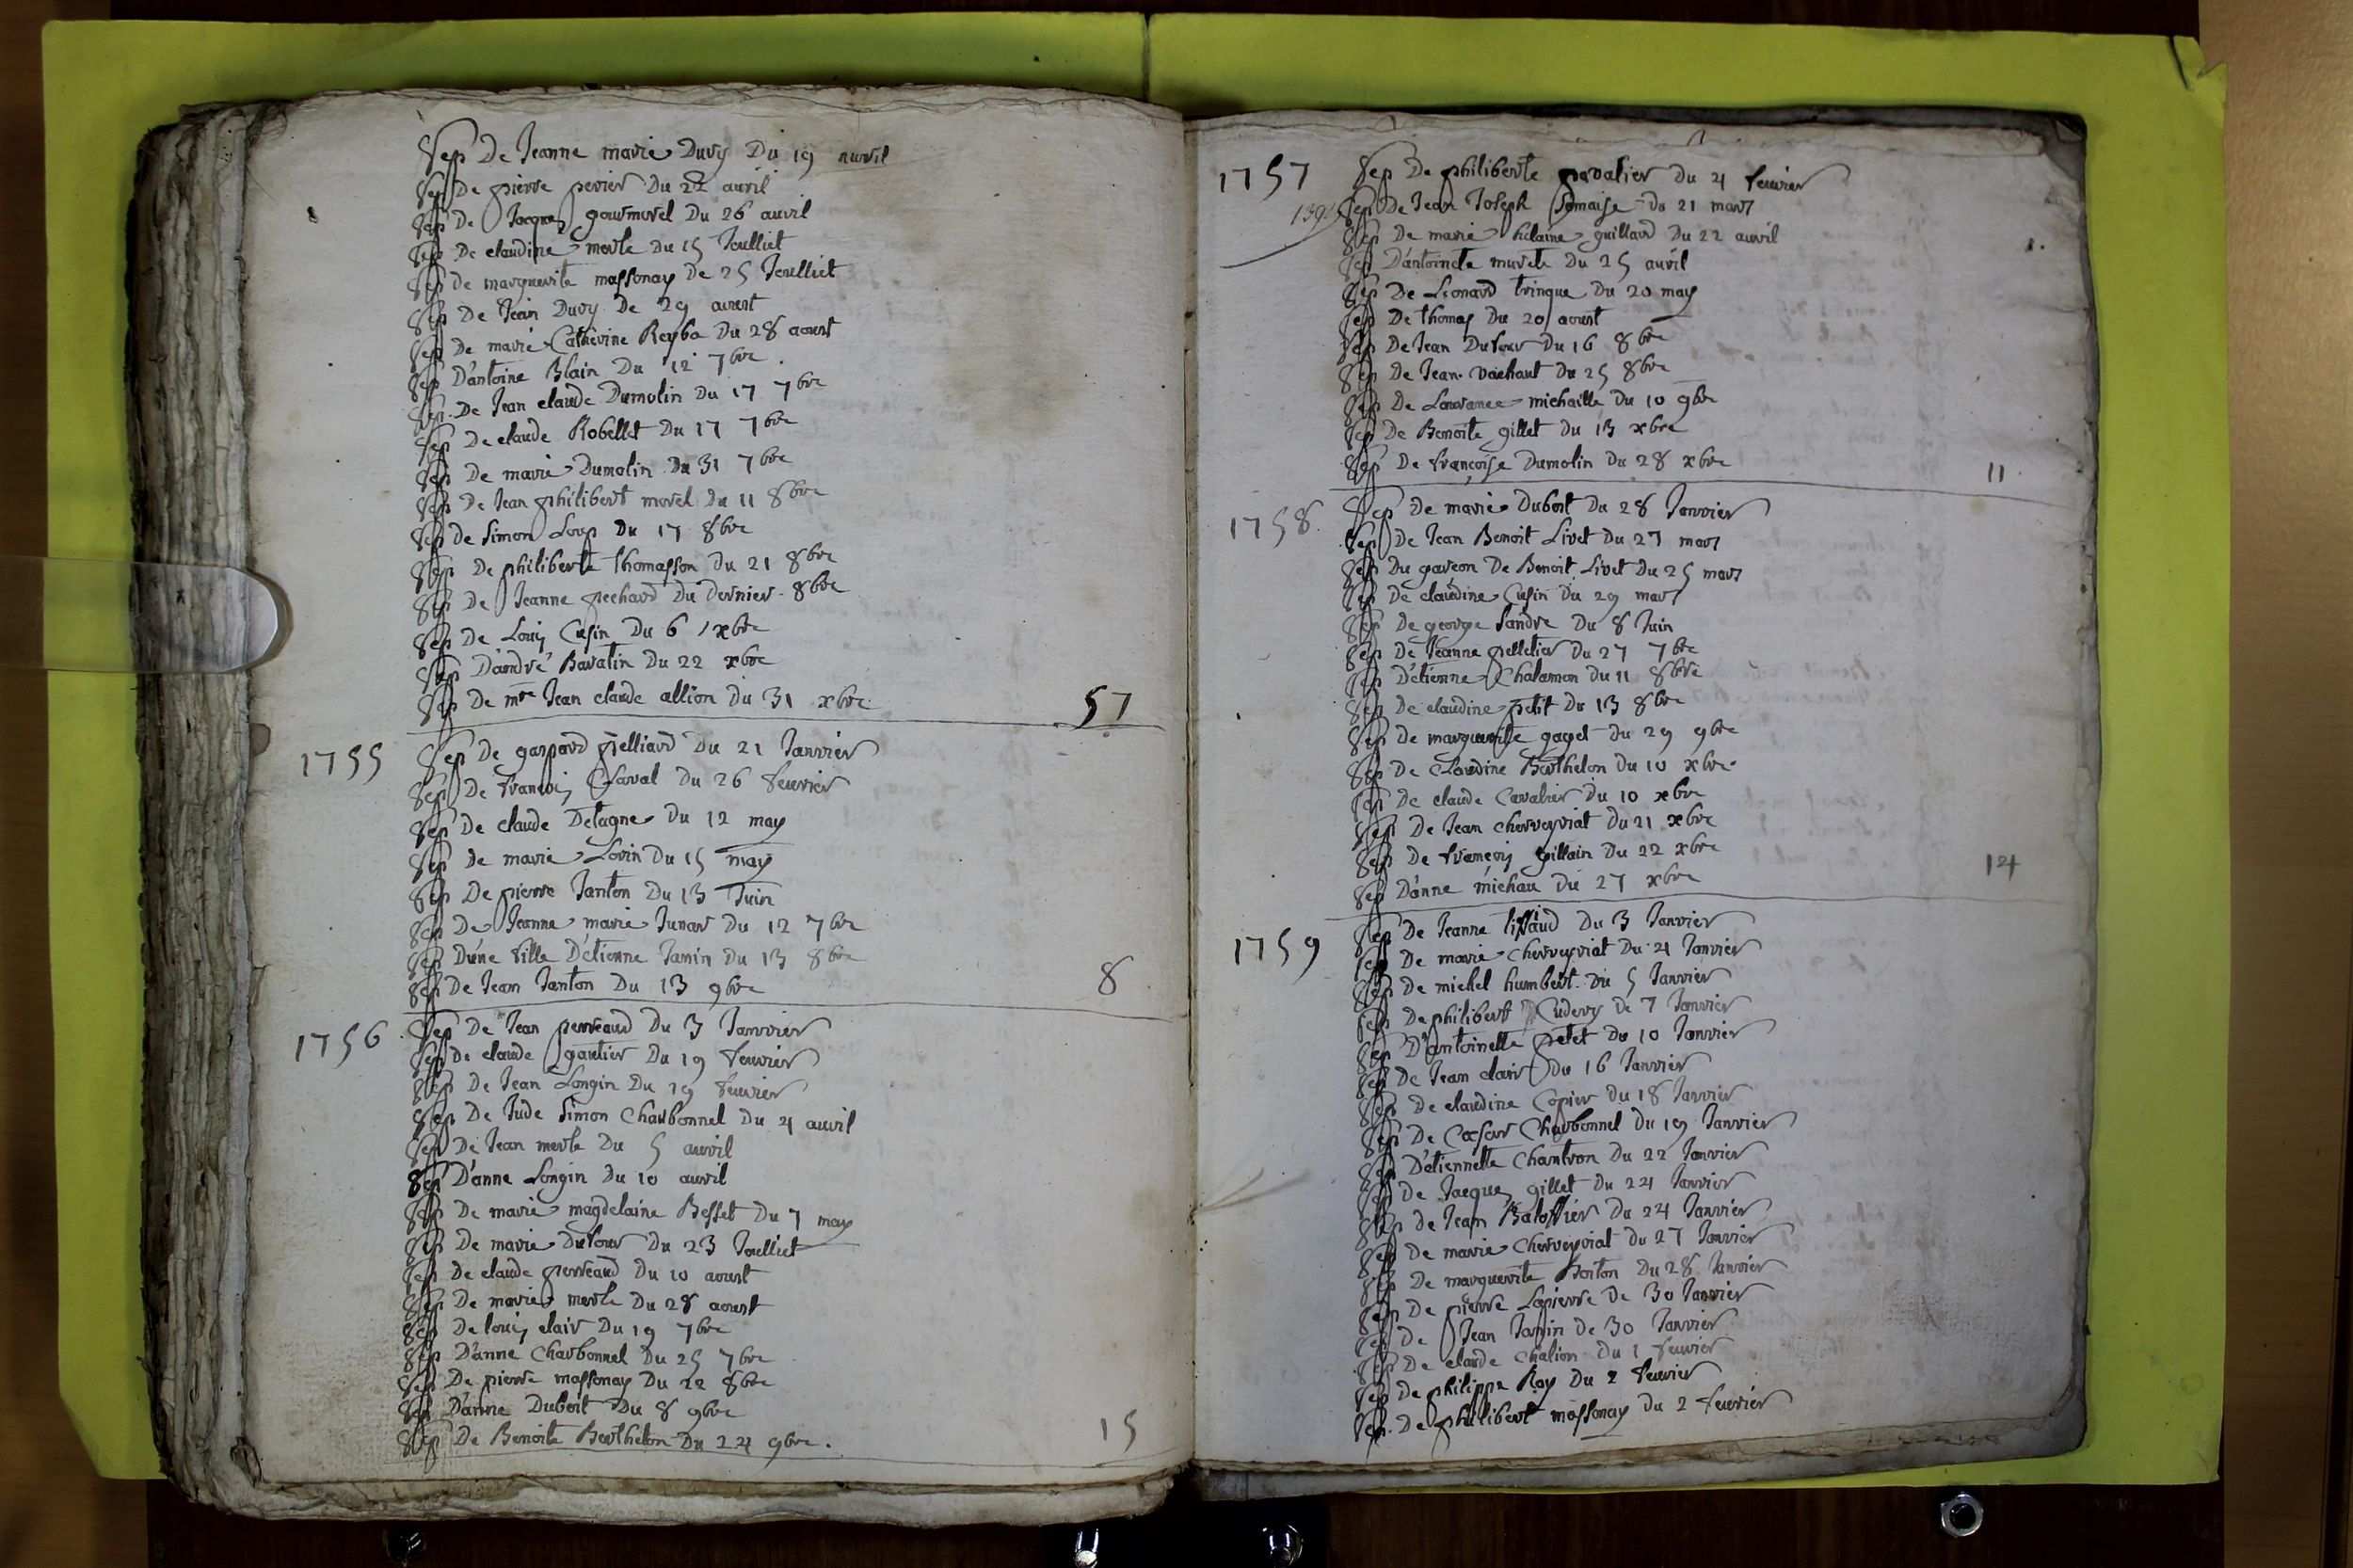 Sep De Jeanne marie Duvy Du 19 auvril
Sep De pierre perier Du 22 auril
Sep De Jacques gourmerel Du 26 auvril
Sep De claudine merle Du 15 Joulliet
Sep De marguerite massonay De 25 Joulliet
Sep De Jean Duvy De 29 aoust
Sep De marie Catherine Reyba Du 28 aoust
Sep D'antoine Blain Du 12 7bre
Sep De Jean claude Dumolin Du 17 7bre
Sep De claude Robellet Du 17 7bre
Sep De marie Dumolin Du 31 7bre
Sep De Jean philibert morel Du 11 8bre
Sep De Simon Loup Du 17 8bre
Sep De philiberte thomasson Du 21 8bre
Sep De Jeanne pechard Du Dernier 8bre
Sep De Louis Cusin Du 6 xbre
Sep D'andré Bavatin Du 22 xbre
Sep De mre Jean claude allion Du 31 xbre 57
1755 Sep De gaspard pelliard Du 21 Janvier
Sep De francois Claval Du 26 feuvrier
Sep De claude Detagne Du 12 may
Sep De marie Lorin Du 15 may
Sep De pierre Janton Du 13 Juin
Sep De Jeanne marie Junar Du 12 7bre
Sep D'une fille D'étienne Jamin Du 13 8bre
Sep De Jean Janton Du 13 9bre 8
1756 Sep De Jean perreaud Du 3 Janvier
Sep De claude gautier Du 19 feuvrier
Sep De Jean Longin Du 19 feuvrier
Sep De Jude Simon Charbonnel Du 4 auvil
Sep De Jean merle Du 5 auvril
Sep D'anne Longin Du 10 auvril
Sep De marie magdelaine Besset Du 7 may
Sep De marie Dufour Du 23 Joulliet
Sep De claude perreaud Du 10 aoust
Sep De marie merle Du 28 aoust
Sep De louis clair Du 19 7bre
Sep D'anne Charbonnel Du 25 7bre
Sep De pierre massonay Du 22 8bre
Sep D'anne Dubost Du 8 9bre
Sep De Benoite Berthelon Du 24 9bre. 15
1757 Sep De philiberte Du 4 feuvrier
Sep De Jean Joseph Somaise Du 21 mars
Sep De marie hilaine guillard Du 22 auvril
Sep D'antoinete murete Du 25 avril
Sep De Leonard tringue Du 20 may
Sep De thomas Du 20 aoust
Sep De Jean Dufour Du 16 8bre
Sep De Jean Vachaut Du 25 8bre
Sep De Louvance michaille Du 10 9bre
Sep De Benoite gillet Du 13 xbre
Sep De françoise Dumolin Du 28 xbre 11
1758. Sep De marie Dubost Du 28 Janvier
Sep De Jean Benoit Livet Du 27 mars
Sep Du garcon De Benoit Livet Du 25 mars
Sep De claudine Cusin Du 29 mars
Sep De george Sandre Du 8 Juin
Sep De Jeanne pelletier Du 27 7bre
Sep D'étienne Chalamon Du 11 8bre
Sep De claudine petit Du 13 8bre
Sep De marguerite gaget Du 29 9bre
Sep De Claudine Berthelon Du 10 xbre
Sep De claude Cavalier Du 10 xbre
Sep De Jean cherveyriat Du 21 xbre
Sep De françois gillain Du 22 xbre
Sep D'anne michau Du 27 xbre 14
1759 Sep De Jeanne tissaud Du 3 Janvier
Sep De marie cherveyriat Du 4 Janvier
Sep De michel humbert Du 5 Janvier
Sep De philibert Cudery De 7 Janvier
Sep D'antoinette petet Du 10 Janvier
Sep De Jean clair Du 16 Janvier
Sep De claudine Copier Du 18 Janvier
Sep De Coesar Charbonnel Du 19 Janvier
Sep D'étiennette Chantron Du 22 Janvier
Sep De Jacques gillet Du 24 Janvier
Sep De Jean Du 24 Janvier
Sep De marie cherveyriat Du 27 Janvier
Sep De marguerite Borton Du 28 Janvier
Sep De pierre Lapierre De 30 Janvier
Sep De Jean Jamin De 30 Janvier
Sep De claude chalion Du 1 feuvrier
Sep De philippe Roy Du 2 feuvrier
Sep. De philibert massonay Du 2 feuvrier